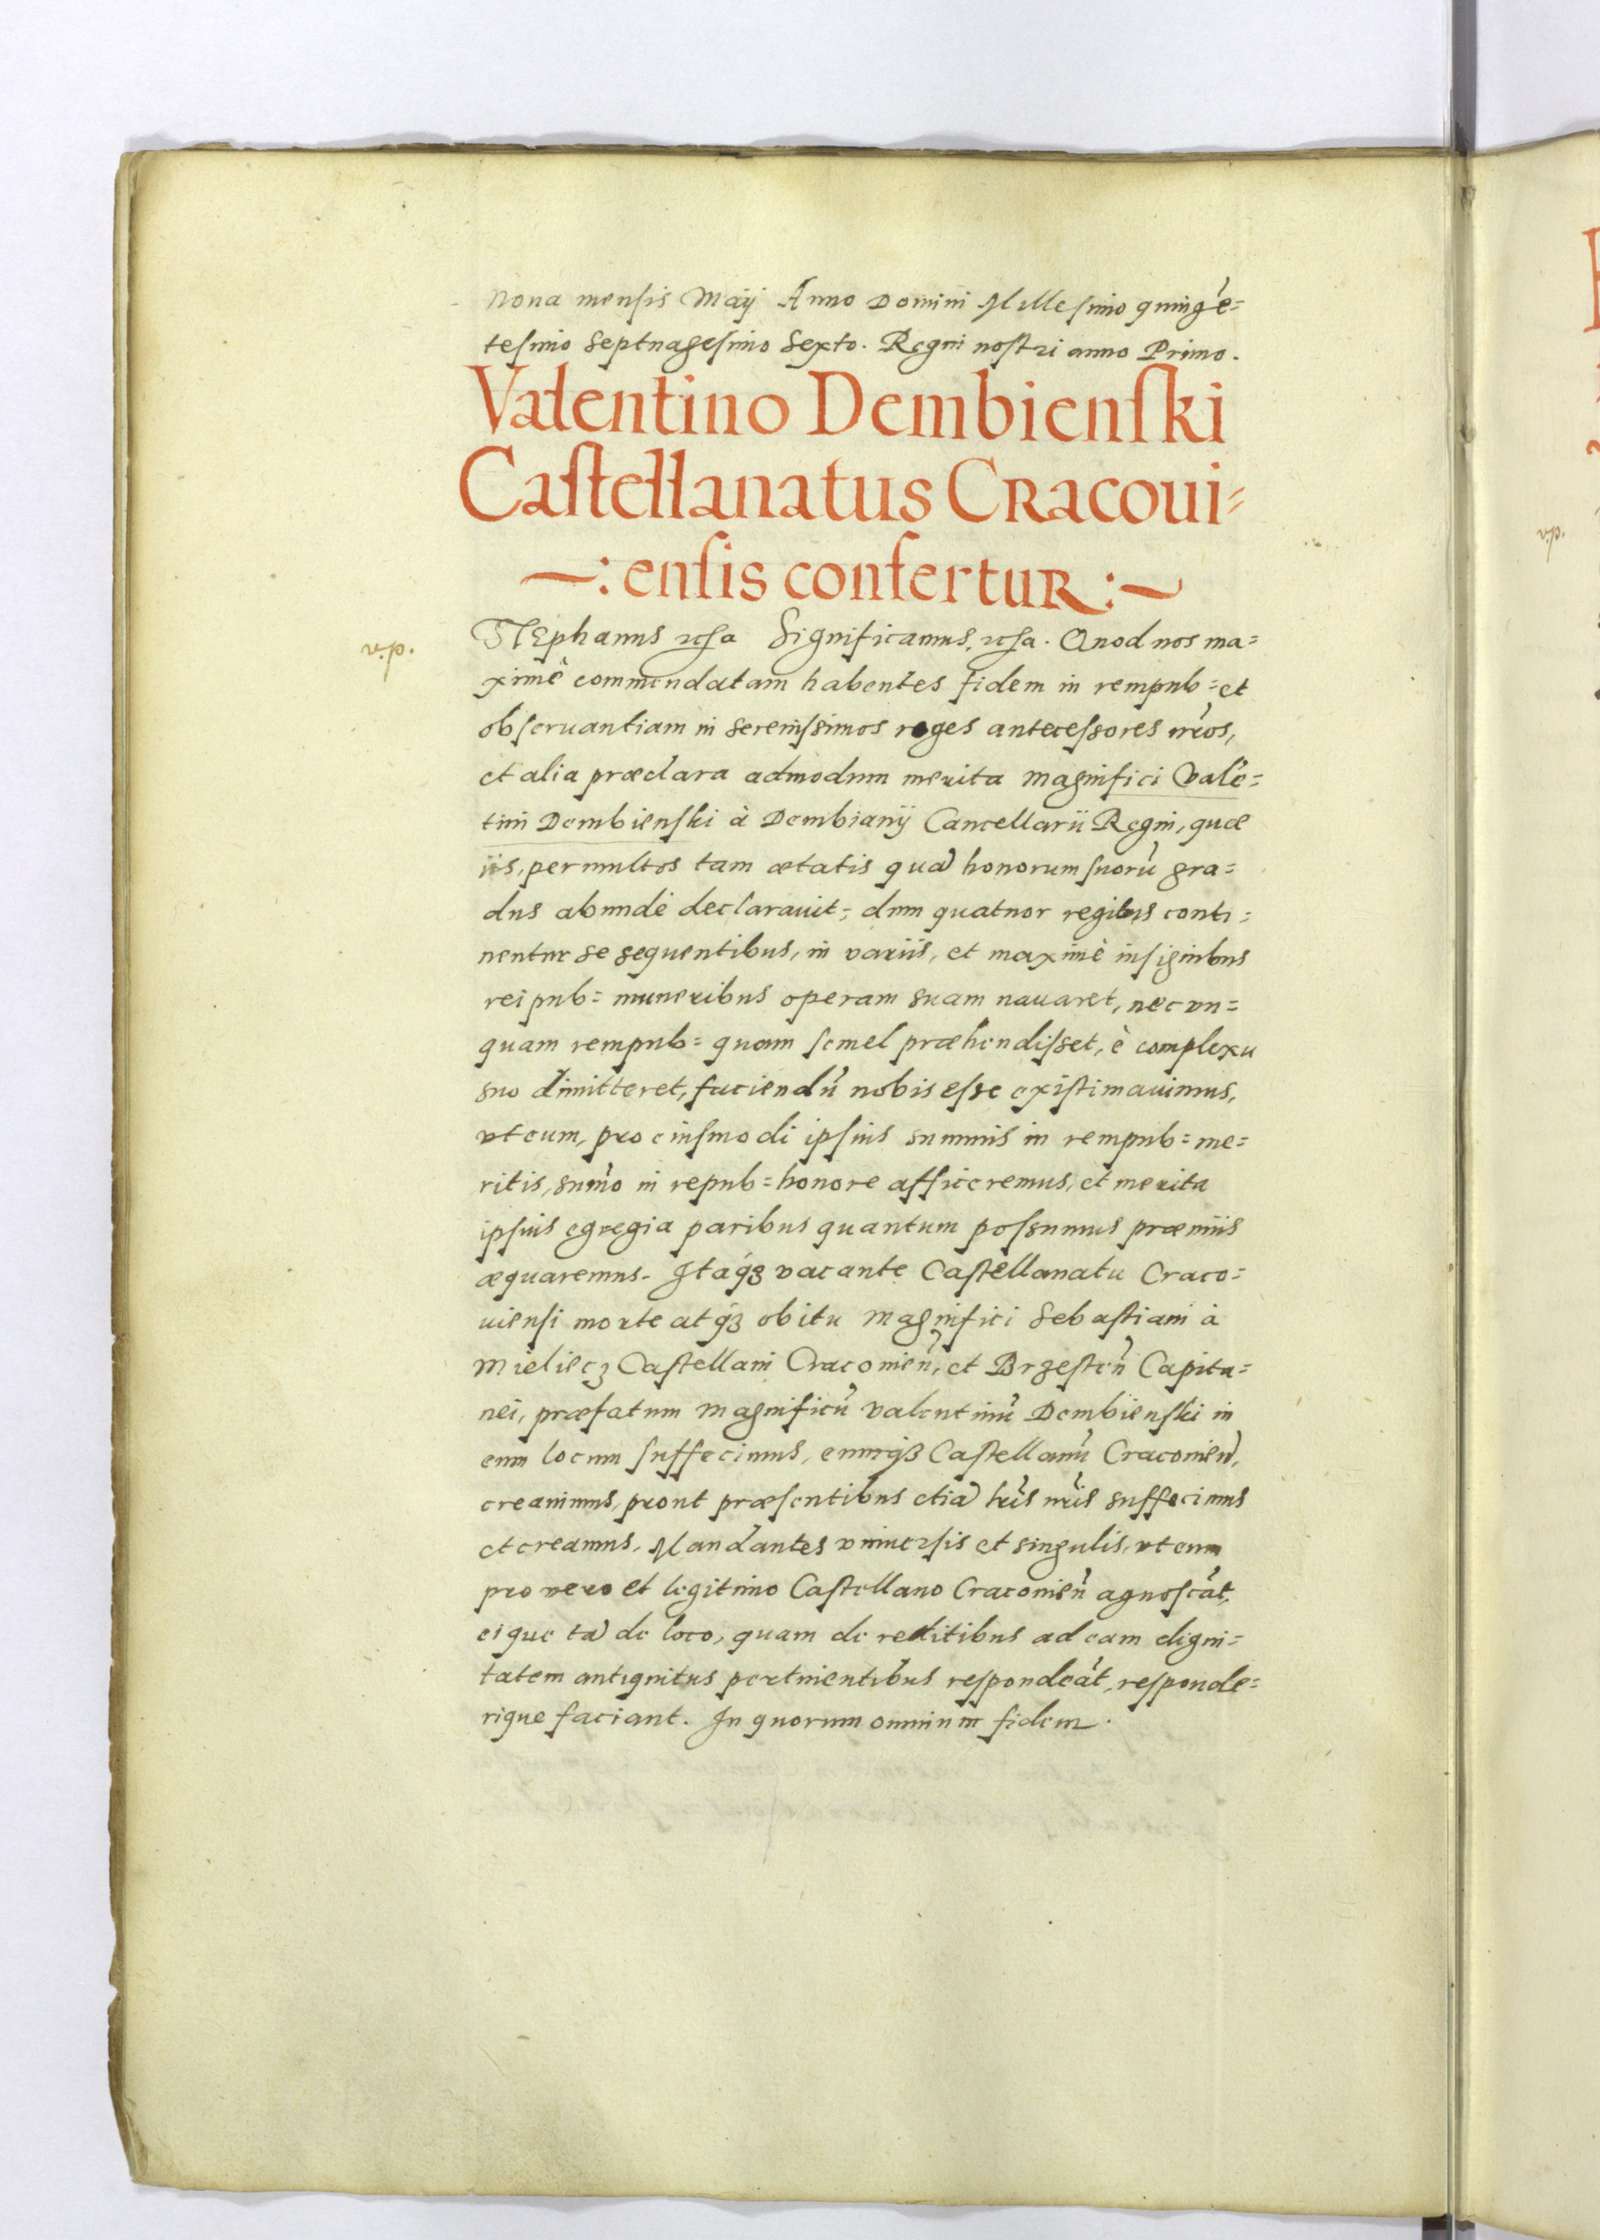 nona mensis Maij Anno Domini Millesimo quingẽ=
tesimo septuagesimo sexto. Regni nostri anno Primo.
Valentino Dembienſki
Caſtellanatus Cracoui=
~: enſis confertur :~
v.p.
STEphanus etc̃a Significamus, etc̃a. Quod nos ma=
ximè commendatam habentes fidem in rempub= et
obſeruantiam in sereniſsimos reges anteceſsores nr̃os,
et alia præclara admodum merita magnifici Valẽ=
tini Dembienſki à Dembianÿ Cancellarii Regni, quæ
iis, per multos tam ætatis quã honorum ſuorũ gra=
dus abundè declarauit; dum quatuor regibus conti=
nenter se sequentibus, in variis, et maximè inſignibus
rei pub= muneribus operam suam nauaret, nec vn=
quam rempub= quam ſemel præhendiſset, è complexu
suo dimitteret, faciendũ nobis eſse exiſtimauimus,
vt eum, pro eiuſmodi ipſius summis in rempub= me=
ritis, sum̃o in repub= honore afficeremus, et merita
ipſius egregia paribus quantum poſsumus præmiis
æquaremus. Itaq́ꝫ vacante Caſtellanatu Craco=
uienſi morte atq́ꝫ obitu magnifici Sebaſtiani à
Mieliecz Caſtellani Cracouieñ, et Brzeſteñ Capita=
nei, præfatum magnificũ Valentinũ Dembienſki in
eum locum ſuffecimus, eumq́ꝫ Caſtellanũ Cracouieñ,
creauimus, prout præſentibus etiã lr̃is nr̃is suffecimus
et creamus. Mandantes vniuerſis et singulis, vt eum
pro vero et legitimo Caſtellano Cracouieñ agnoſcãt,
eique tã de loco, quam de reditibus ad eam digni=
tatem antiquitus pertinentibus reſpondeãt, reſponde=
rique faciant. In quorum omnium fidem.
v.p.